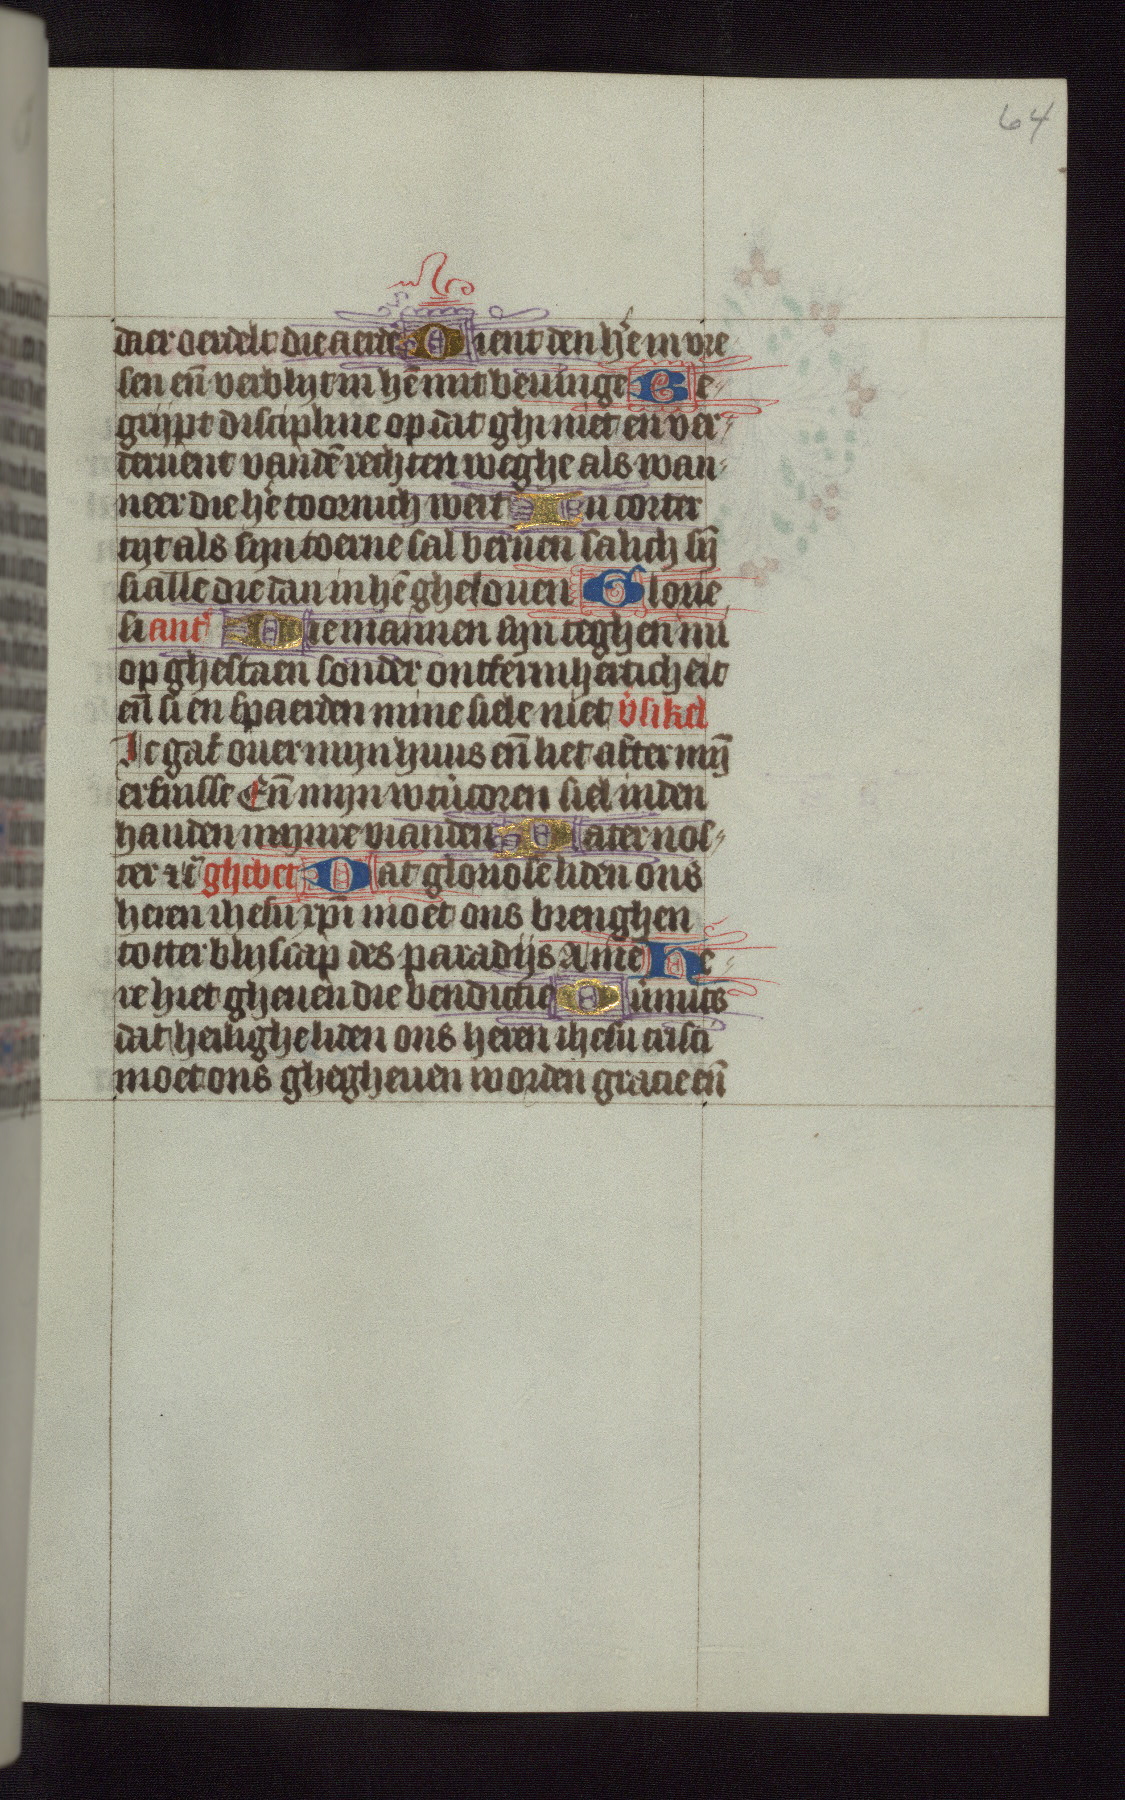 64
daer oerdelt die aerde Dient den he᷑ in vre
sen en̄ verblijt in hē mit beuinge Be
grijpt discipline op dat ghi niet en ver
deruent vandē rechten weghe als wan
neer die he᷑ toornich wert In corter
tijt als sijn toerne sal bernen salich sij̄
si alle die dan in hē ghelouen Glorie
si ant᷑ Die mannen sijn teghen mi
op ghestaen sonder ontfermherticheit
en̄ si en spaerden mine siele niet v̓sikel
Ic gaf ouer mijn huus en̄ liet after mij̄
erfnisse En̄ mijn wtuicoren siel inden
handen mijnre vianden Pater nos
ter ⁊c̄ ghebet Dat gloriose liden ons
heren ihesu xp̄i moet ons brenghen
totter blijscap des paradijs Amē He
re hiet gheuen die benedictie Ouermits
dat heilighe liden ons heren ihesu cristi
moet ons ghegheuen worden gracie en̄